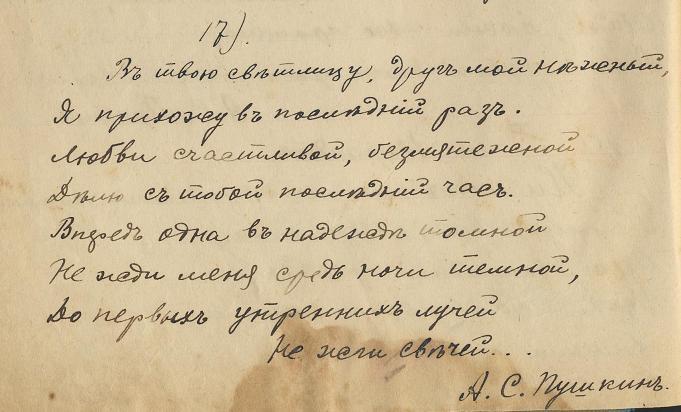 17).
Въ твою свѣтлицу, другъ мой нѣженый,
Я прихожу въ послѣдній разъ.
Любви счастливой, безмятежной
Дѣлю съ тобой послѣдній часъ.
Впредь одна въ надеждѣ томной
Не жди меня средь ночи темной,
До первыхъ утреннихъ лучей
Не жги свѣчей...
А. С. Пушкинъ.